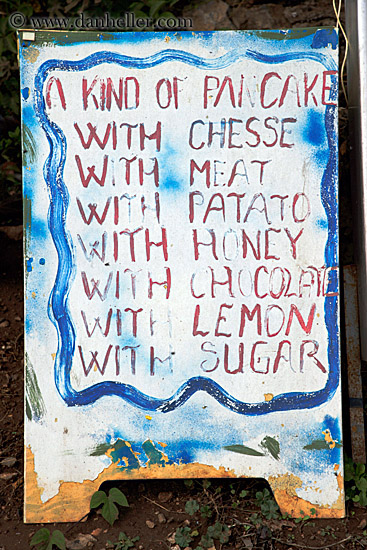 www.danheller.com
A KIND OF PANCAKE
WITH CHESSE
WITH MEAT
WITH PATATO
WITH HONEY
WITH CHOCOLATE
WITH LEMON
WITH SUGAR
© Dan Heller